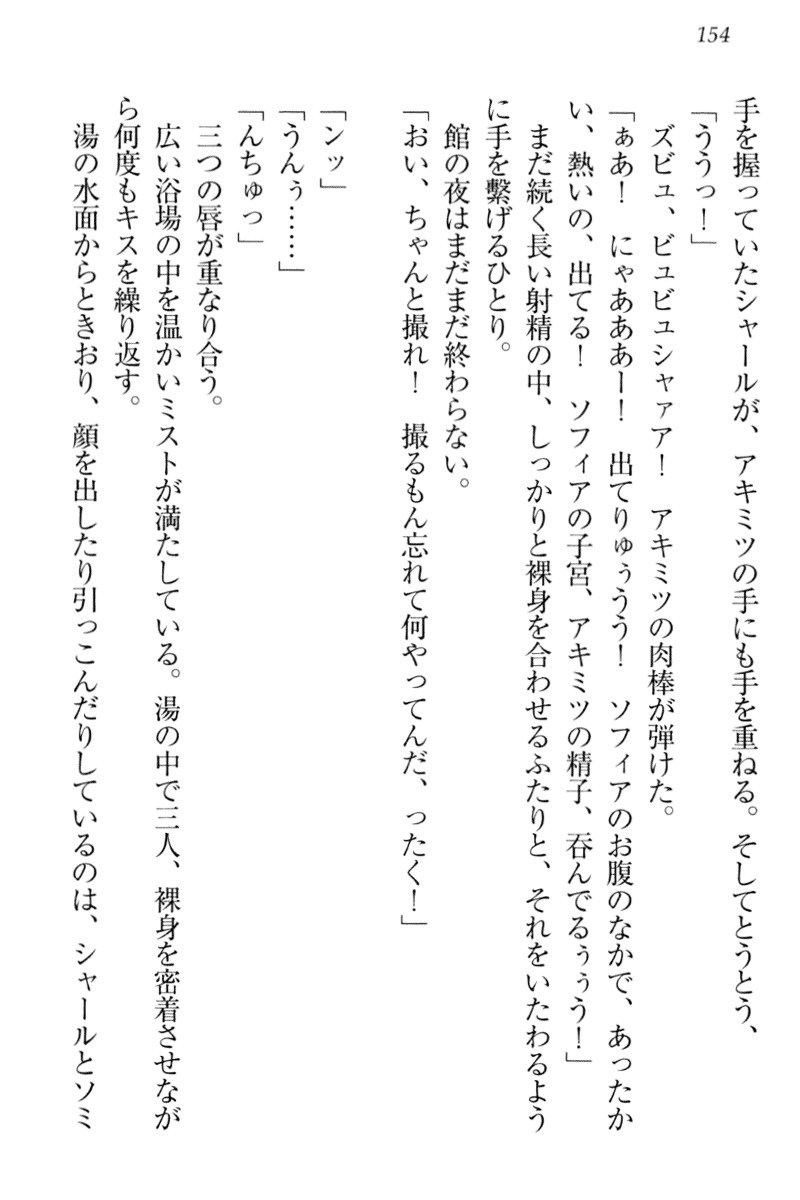 154
手を握っていたシャールが、アキミツの手にも手を重ねる。そしてとうとう、
「ううっ！」
　ズビュ、ビュビュシャァア！　アキミツの肉棒が弾けた。
「ぁあ！　にゃあああー！　出てりゅぅうう！　ソフィアのお腹のなかで、あったか
い、熱いの、出てる！　ソフィアの子宮、アキミツの精子、呑んでるぅぅう！」
　まだ続く長い射精の中、しっかりと裸身を合わせるふたりと、それをいたわるよう
に手を繋げるひとり。
　館の夜はまだまだ終わらない。
「おい、ちゃんと撮れ！　撮るもん忘れて何やってんだ、ったく！」
「ンッ」
「うんぅ……」
「んちゅっ」
　三つの唇が重なり合う。
　広い浴場の中を温かいミストが満たしている。湯の中で三人、裸身を密着させなが
ら何度もキスを繰り返す。
　湯の水面からときおり、顔を出したり引っこんだりしているのは、シャールとソミ